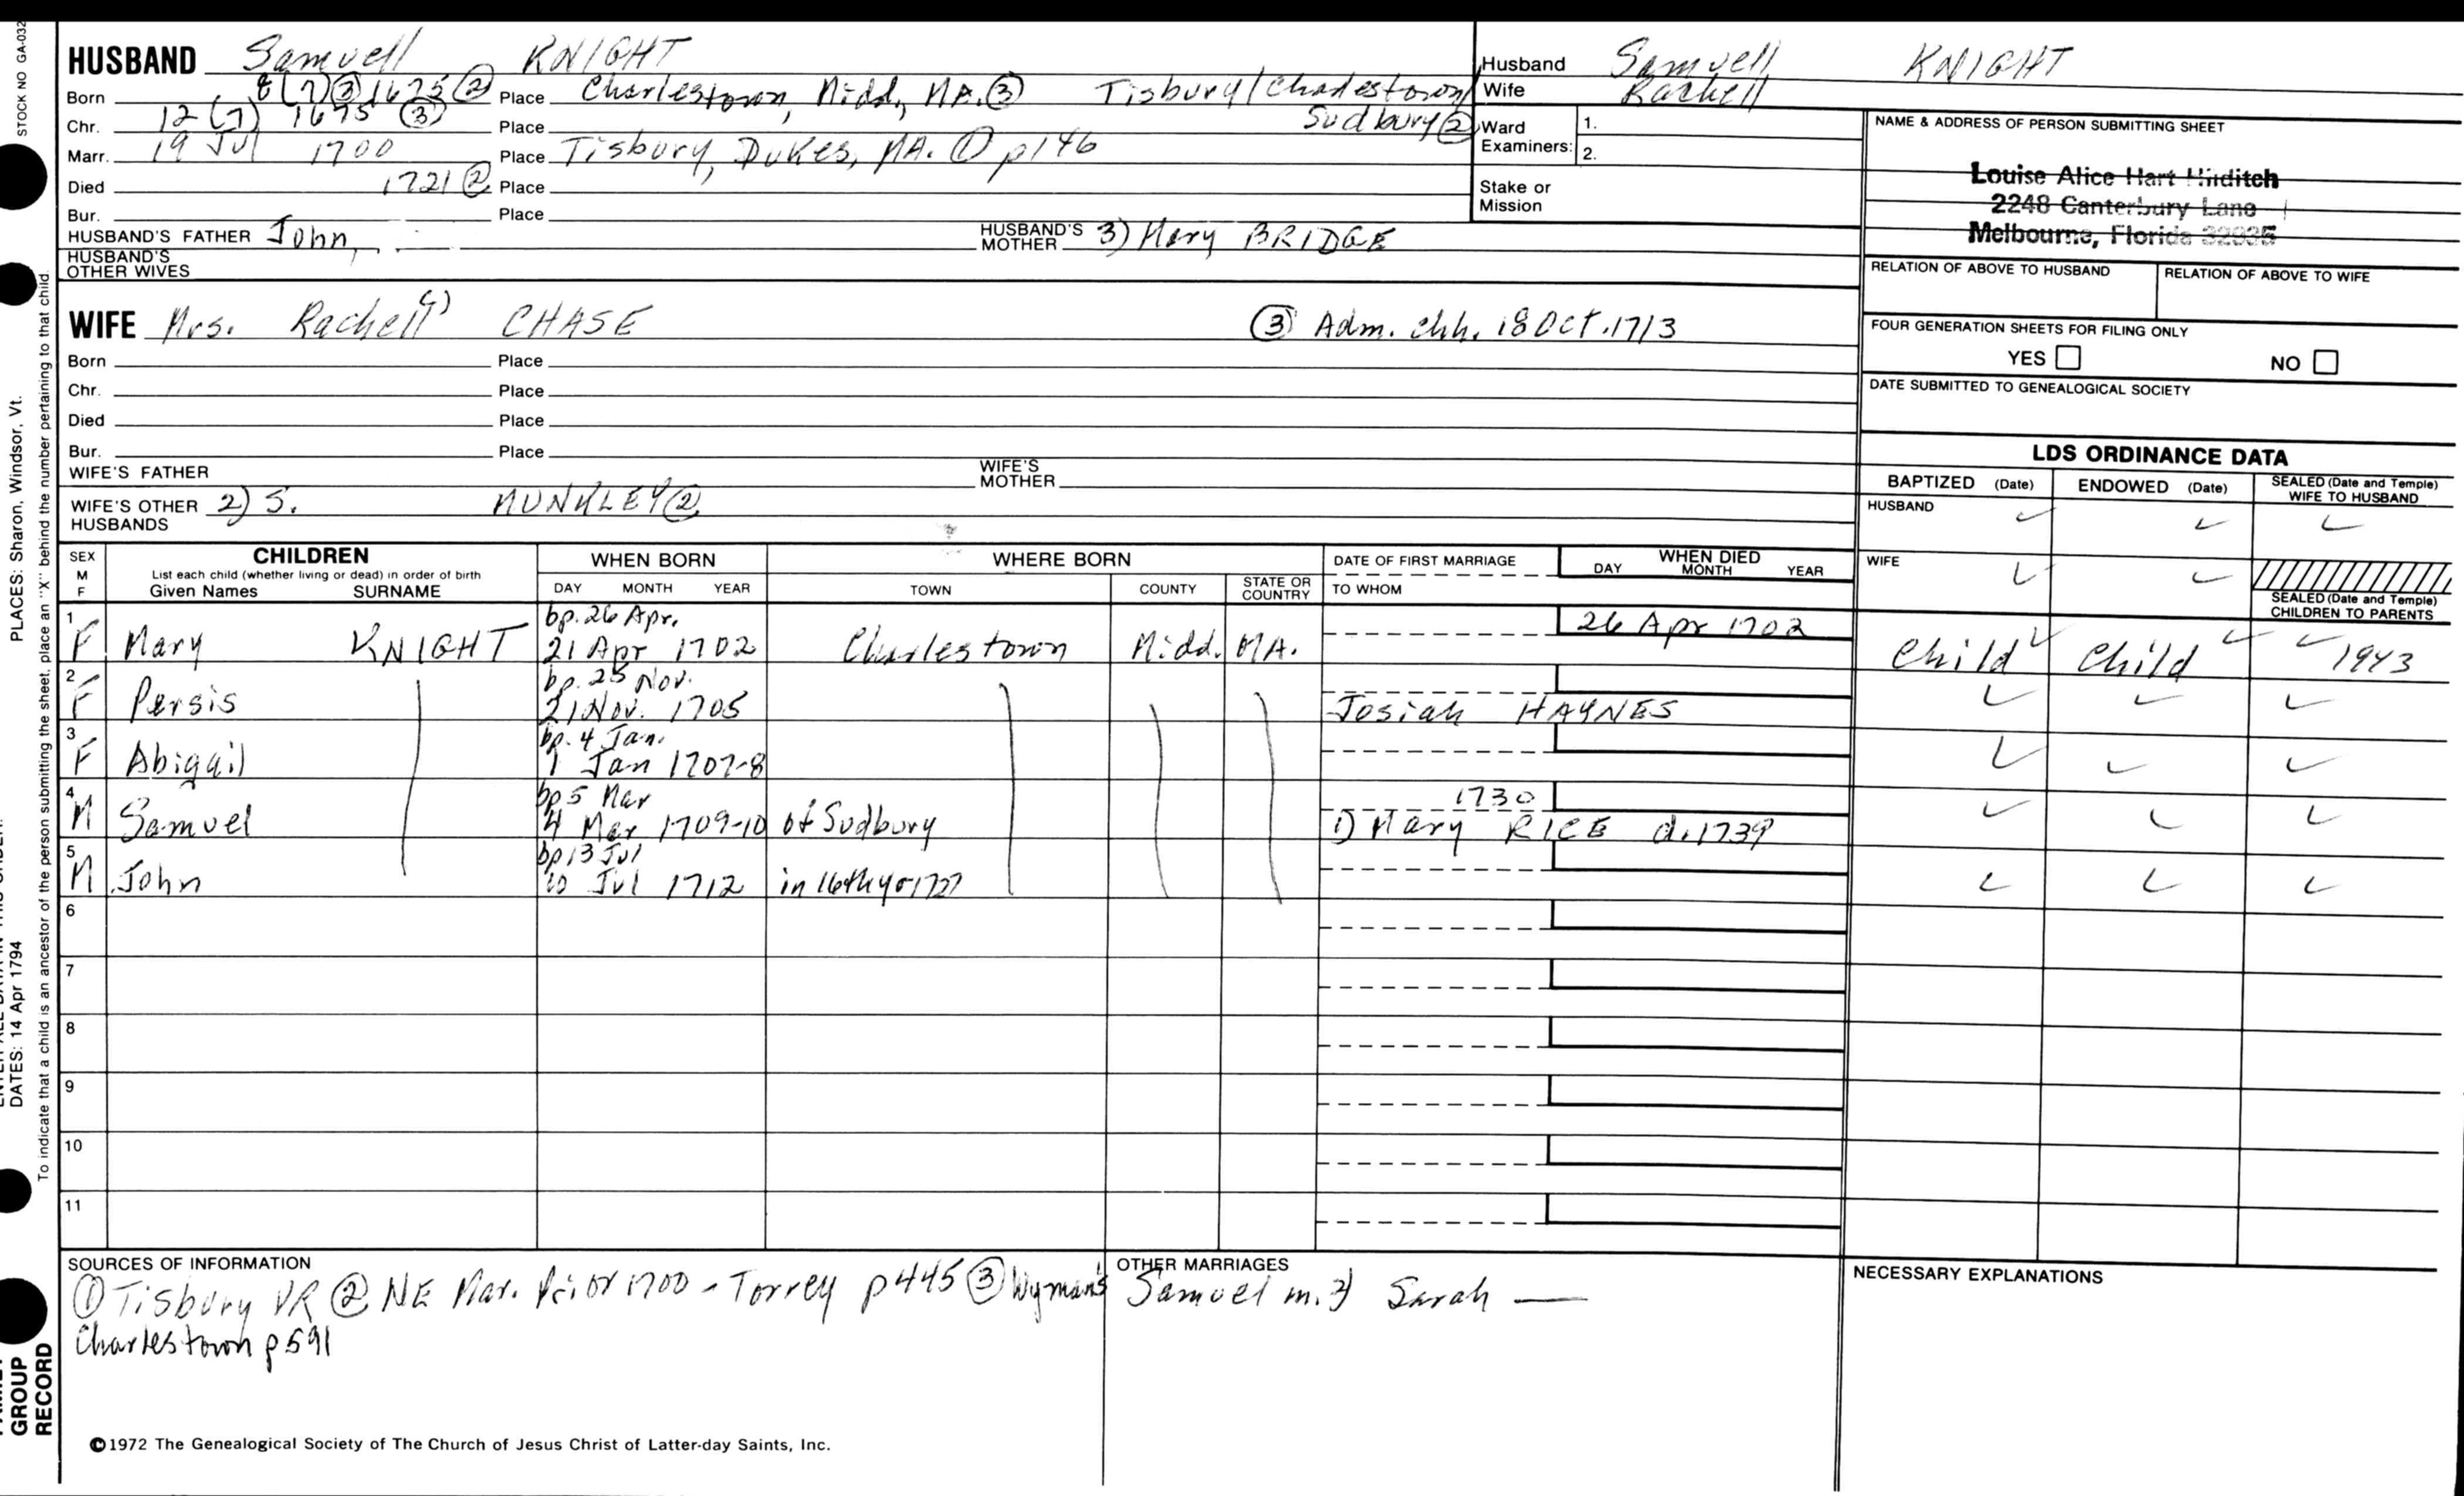 STOCK NO GA-032
PLACES: Sharon, Windsor, Vt.
DATES: 14 Apr 1794
To indicate that a child is an ancestor of the person submitting the sheet, place an "X" behind the number pertaining to that child.
GROUP
RECORD
HUSBAND Samuell KNIGHT
Born 8 (7) ③ 1675 ② Place Charlestown, Midd, MA. ③ Tisbury/Charlestown/
Sudbury ②
Chr. 12 (7) 1675 ③ Place
Marr. 19 Jul 1700 Place Tisbury, Dukes, MA. ① p146
Died 1721 ② Place
Bur. Place
HUSBAND'S FATHER John HUSBAND'S MOTHER 3) Mary BRIDGE
HUSBAND'S OTHER WIVES
Husband Samuell KNIGHT
Wife Rachell
Ward Examiners: 1.
2.
Stake or Mission
NAME & ADDRESS OF PERSON SUBMITTING SHEET
Louise Alice Hart Hinditch
2248 Canterbury Lane
Melbourne, Florida 32935
RELATION OF ABOVE TO HUSBAND RELATION OF ABOVE TO WIFE
FOUR GENERATION SHEETS FOR FILING ONLY
YES NO
DATE SUBMITTED TO GENEALOGICAL SOCIETY
WIFE Mrs. Rachell CHASE ③ Adm. chh. 18 Oct. 1713
Born Place
Chr. Place
Died Place
Bur. Place
WIFE'S FATHER WIFE'S MOTHER
WIFE'S OTHER HUSBANDS 2) S. MUNKLEY ②
LDS ORDINANCE DATA
BAPTIZED (Date) ENDOWED (Date) SEALED (Date and Temple) WIFE TO HUSBAND
HUSBAND ✓ ✓ ✓
WIFE ✓ ✓
SEALED (Date and Temple) CHILDREN TO PARENTS
SEX M F CHILDREN WHEN BORN WHERE BORN DATE OF FIRST MARRIAGE WHEN DIED
List each child (whether living or dead) in order of birth
Given Names SURNAME DAY MONTH YEAR TOWN COUNTY STATE OR COUNTRY TO WHOM DAY MONTH YEAR
bp. 26 Apr. 26 Apr 1702
1 F Mary KNIGHT 21 Apr 1702 Charlestown Midd. MA. Child ✓ Child ✓ ✓ 1943
bp. 25 Nov.
2 F Persis 21 Nov. 1705 Josiah HAYNES ✓ ✓ ✓
bp. 4 Jan.
3 F Abigail 1 Jan 1707-8 ✓ ✓ ✓
bp 5 Mar 1730
4 M Samuel 4 Mar 1709-10 of Sudbury 1) Mary RICE d. 1739 ✓ ✓ ✓
bp 13 Jul
5 M John 10 Jul 1712 in 16th yr 1727 ✓ ✓ ✓
6
7
8
9
10
11
SOURCES OF INFORMATION
① Tisbury VR ② NE Mar. Prior 1700 - Torrey p445 ③ Wyman's
Charlestown p591
OTHER MARRIAGES
Samuel m. 2) Sarah —
NECESSARY EXPLANATIONS
©1972 The Genealogical Society of The Church of Jesus Christ of Latter-day Saints, Inc.